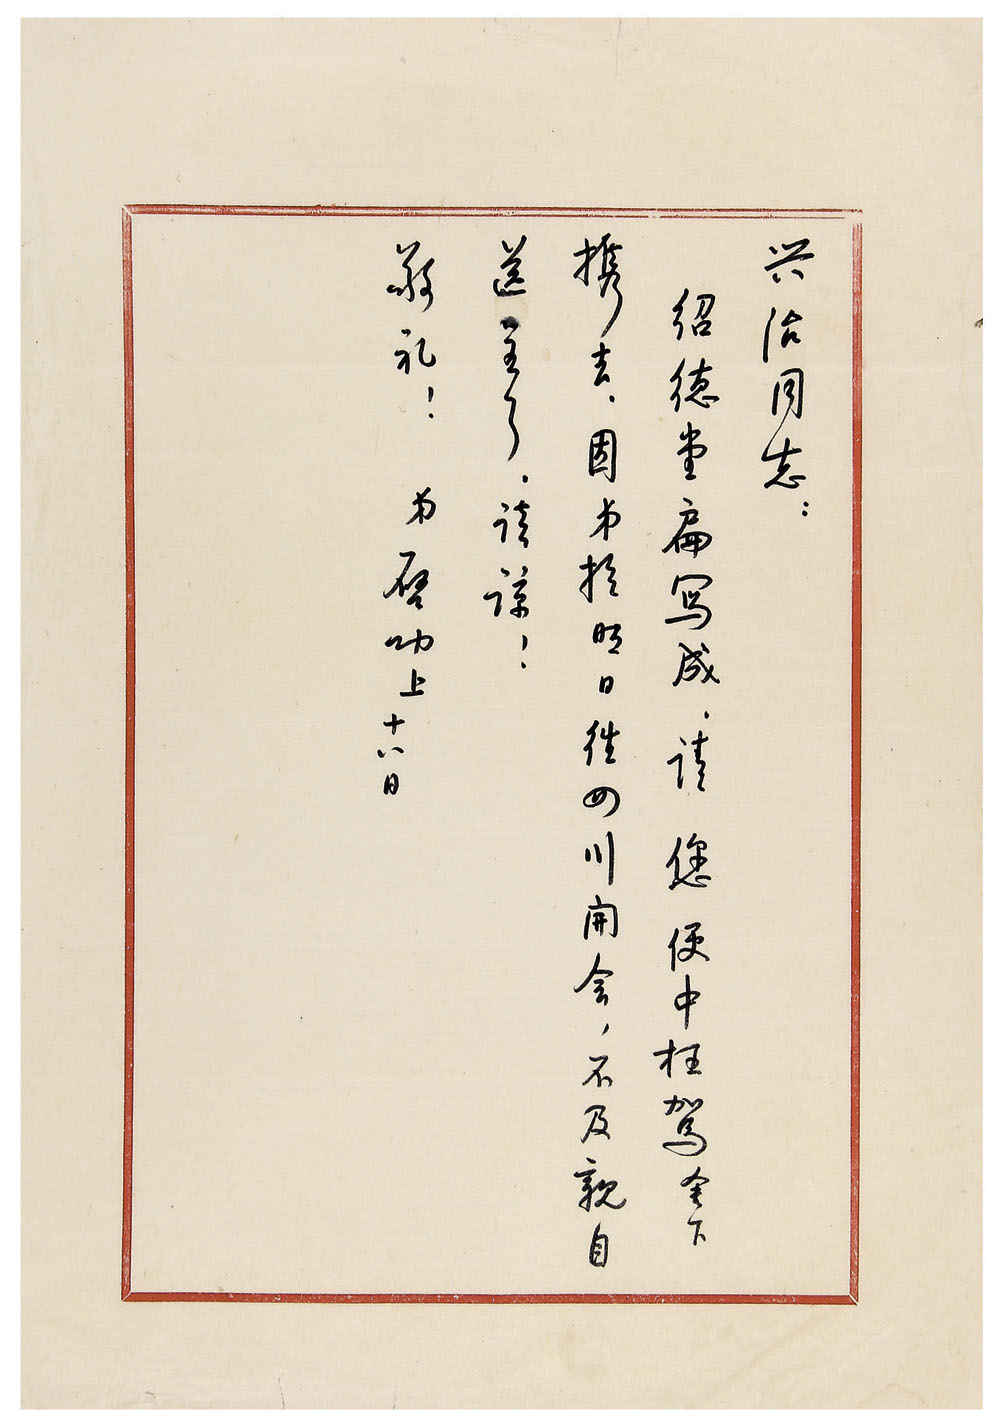 兴治同志：
绍德堂扁写成，请 您便中枉驾舍下
携去，因弟於明日往四川開会，不及親自
送呈了，请谅！
敬礼！ 弟启功上 十八日